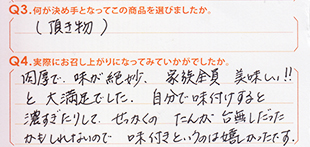 Q3.何が決め手となってこの商品を選びましたか。
(頂き物)
Q4.実際にお召し上がりになってみていかがでしたか。
肉厚で、味が絶妙、家族全員 美味しい!!
と大満足でした。自分で味付けすると
濃すぎたりして、せっかくのたんが台無しだった
かもしれないので味付きというのは嬉しかったです。